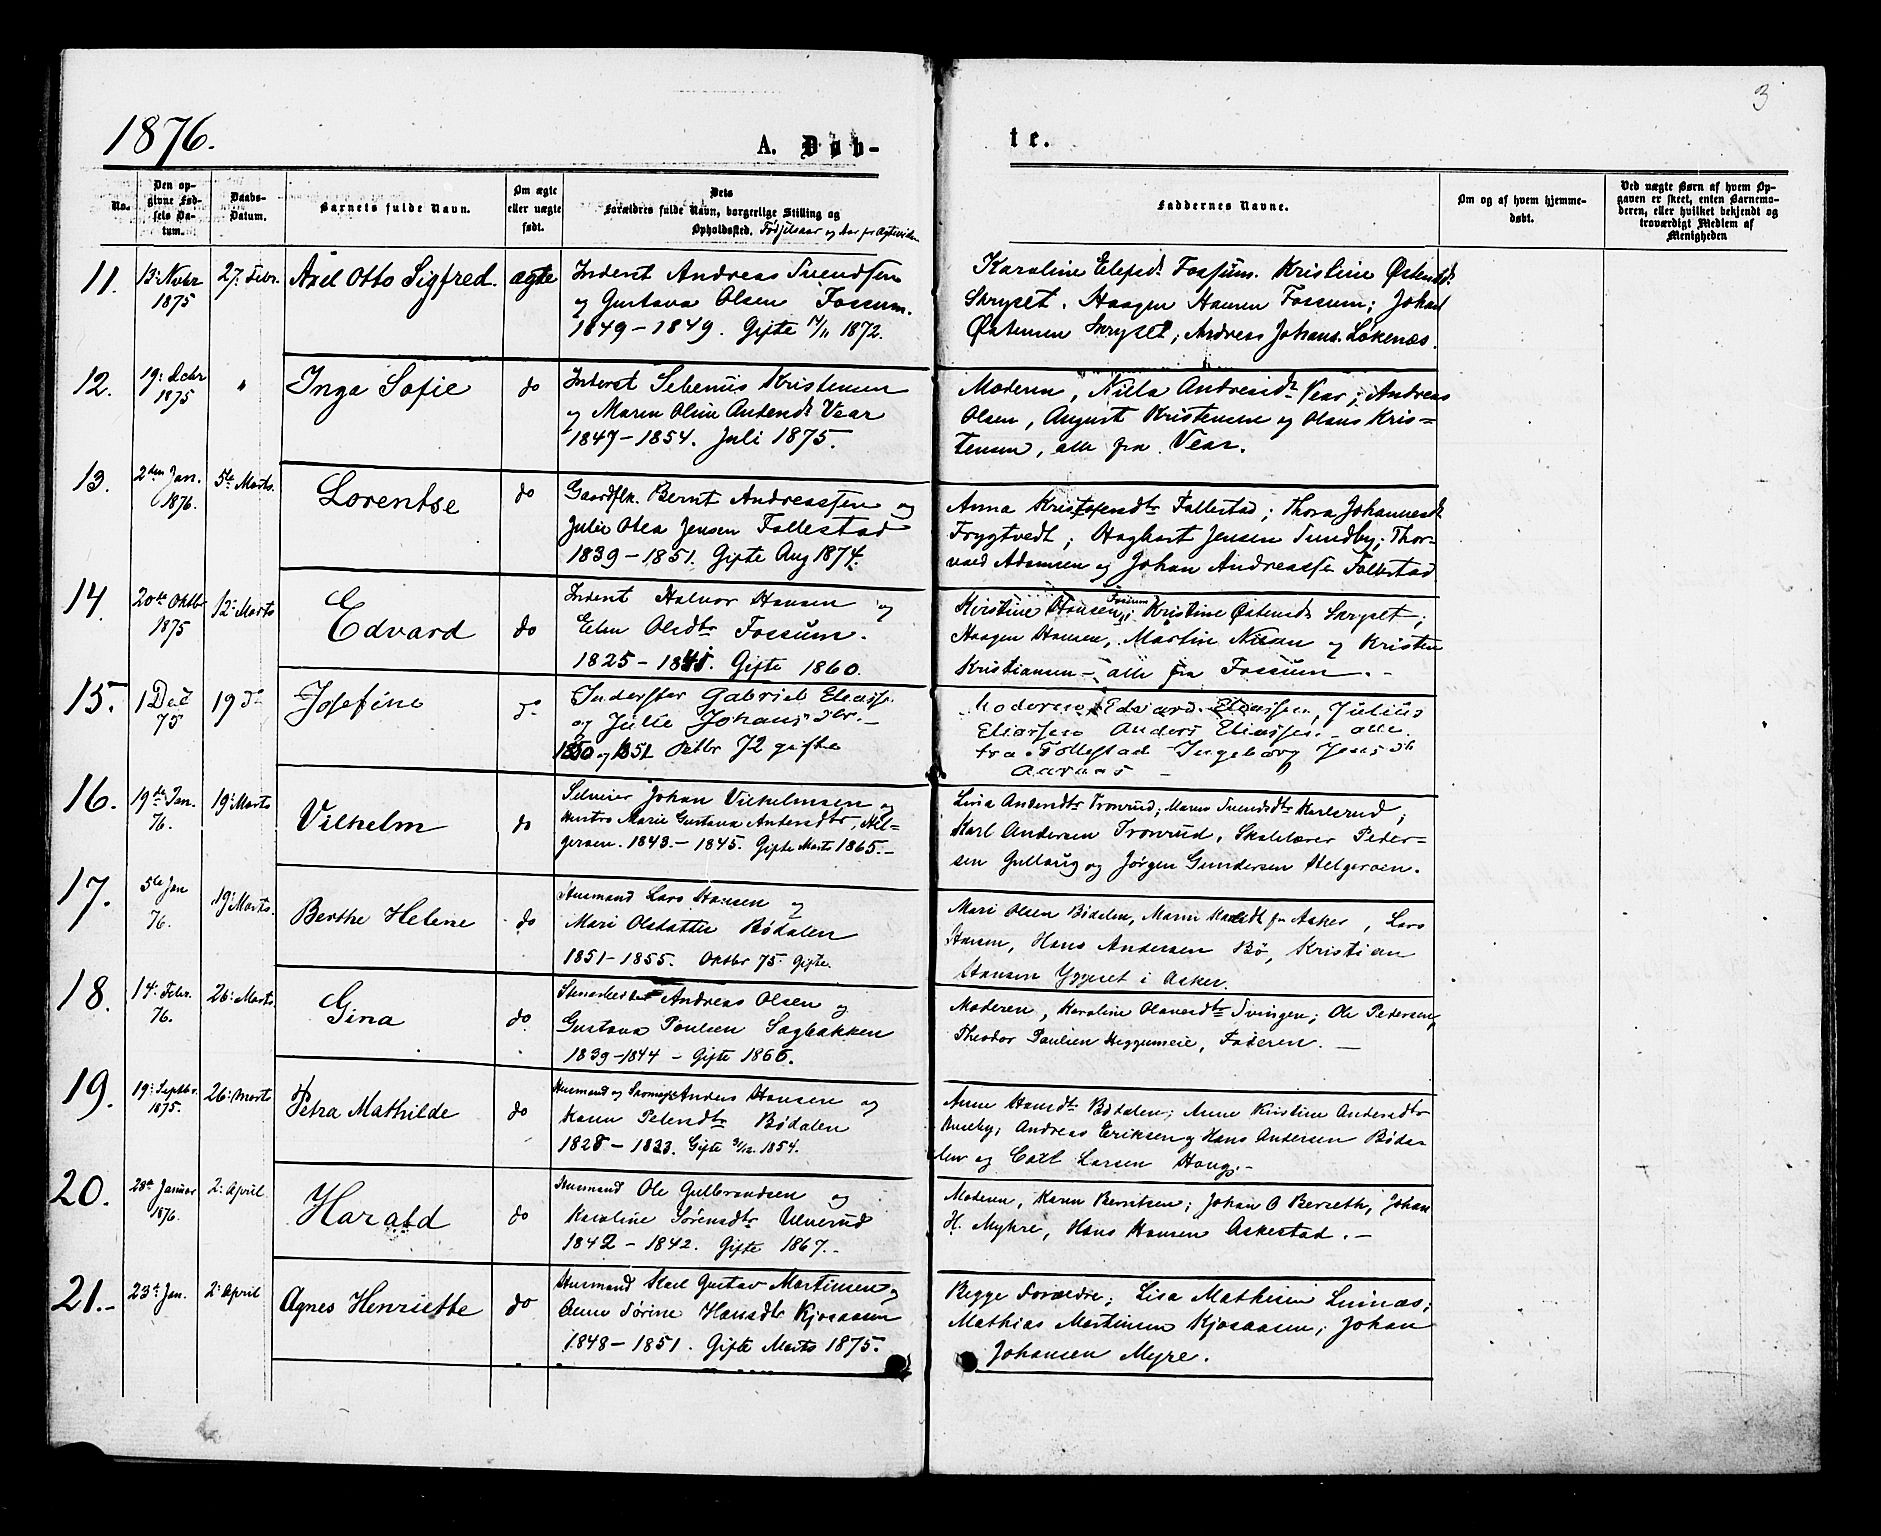 3
1876.
A. Døb-
te.
No.
Den op-
givne Fød-
sels Da-
tum.
Daabs-
Datum.
Barnets fulde Navn.
Om ægte
eller uægte
født.
Dets
Forældres fulde Navn, borgerlige Stilling og
Opholdssted. Fødselsaar og Aar for Ægtevielsen
Faddernes Navne.
Om og af hvem hjemme-
døbt.
Ved uægte Børn af hvem Op-
gaven er skeet, enten Barnemo-
deren, eller hvilket bekjendt og
troværdigt Medlem af
Menigheden
11. 13: Nvbr 1875 27: Febr. Axel Otto Sigfred. ægte
Inderst Andreas Svendsen
og Gustava Olsen Fossum.
1849 - 1849. Gifte 1872.
Karoline Elefsd. Fossum. Kristine Østensd.
Skryset. Haagen Hansen Fossum; Johan
Østensen Skryset; Andreas Johans. Løkenæs.
12. 19: Dcbr 1875 " Inga Sofie do
Inderst Sebenius Kristensen
og Maren Oline Andersd. Vear
1847 - 1854. Juli 1875.
Moderen, Nilla Andreasdt Vear; Andreas
Olsen, August Kristensen og Olaus Kris-
tensen, alle fra Vear.
13. 2den Jan. 1876. 5te Marts. Lorentse do
Gaardflk. Bernt Andreassen og
Julie Olea Jensen Follestad
1839 - 1851. Gifte Aug 1874.
Anna Kristofersdtr Follestad; Thora Johannesdt
Frygtvedt; Hagbart Jensen Sundby; Thor-
vald Adamsen og Johan Andreassen Follestad
14. 20de Oktbr 1875 12: Marts Edvard do
Inderst Halvor Hansen og
Elen Olsdtr Fossum.
1825 - Gifte 1860.
Kristine Hansen Fossum; Kristine Østensd. Skryset;
Haagen Hansen, Martin Nilsen og Kristen
Kristiansen - alle fra Fossum. -
15. 1 Dec 75 19 do Josefine do
Inderster Gabriel Eliass.
og Julie Johansdtr. -
1850 og 1851 Oktbr 72 gifte
Moderen Edvard Eliassen, Julius
Eliassen Anders Eliassen - alle
fra Follestad Ingeborg Jensdt
Aarnæs -
16. 19de Jan. 76. 19: Marts Vilhelm do
Selveier Johan Vilhelmsen og
Hustro Marie Gustava Andersdtr, Hel-
gersen. 1843. - 1845. Gifte Marts 1865. -
Lina Andersdtr Tronrud; Maren Svendsdtr Karlsrud;
Karl Andersen Tronrud, Skolelærer Peder-
sen Gullaug og Jørgen Gundersen Helgersen.
17. 5te Jan 76. 19: Marts. Berthe Helene do
Husmand Lars Hansen og
Mari Olsdatter Bødalen
1851 - 1855. Oktbr 75 Gifte.
Mari Olsen Bødalen, Maren fra Asker, Lars
Hansen, Hans Andersen Bø, Kristian
Hansen Yggeset i Asker.
18. 14: Febr. 76. 26: Marts Gina do
Stenarbeider Andreas Olsen og
Gustava Poulsen Sagbakken
1839 - 1844 - Gifte 1866.
Moderen, Karoline Olavesdtr Svingen; Ole Pedersen,
Theodor Paulsen Heggumeie, Faderen. -
19. 19: Septbr. 1875. 26: Marts Petra Mathilde do
Husmand og Anders Hansen og
Karen Petersdtr Bødalen
1828 - 1833. Gifte 1854.
Anne Hansdtr Bødalen; Anne Kristine Andersdtr
Huseby; Andreas Eriksen og Hans Andersen Bøda-
len og Carl Larsen Haug. -
20. 28de Januar 1876. 2: April Harald do
Husmand Ole Gulbrandsen og
Karoline Sørensdtr Ulverud
1842 - 1842. Gifte 1867. -
Moderen, Karen Berntsen; Johan O Berseth, Johan
H. Myhre, Hans Hansen Askestad. -
21. - 23de Jan. 2: April Agnes Henriette do
Husmand Karl Gustav Martinsen og
Anne Sørine Hansdtr Kjosaasen
1848 - 1851. Gifte Marts 1875.
Begge Forældre; Lisa Mathisen Linnæs;
Mathias Martinsen Kjosaasen; Johan
Johansen Myre.